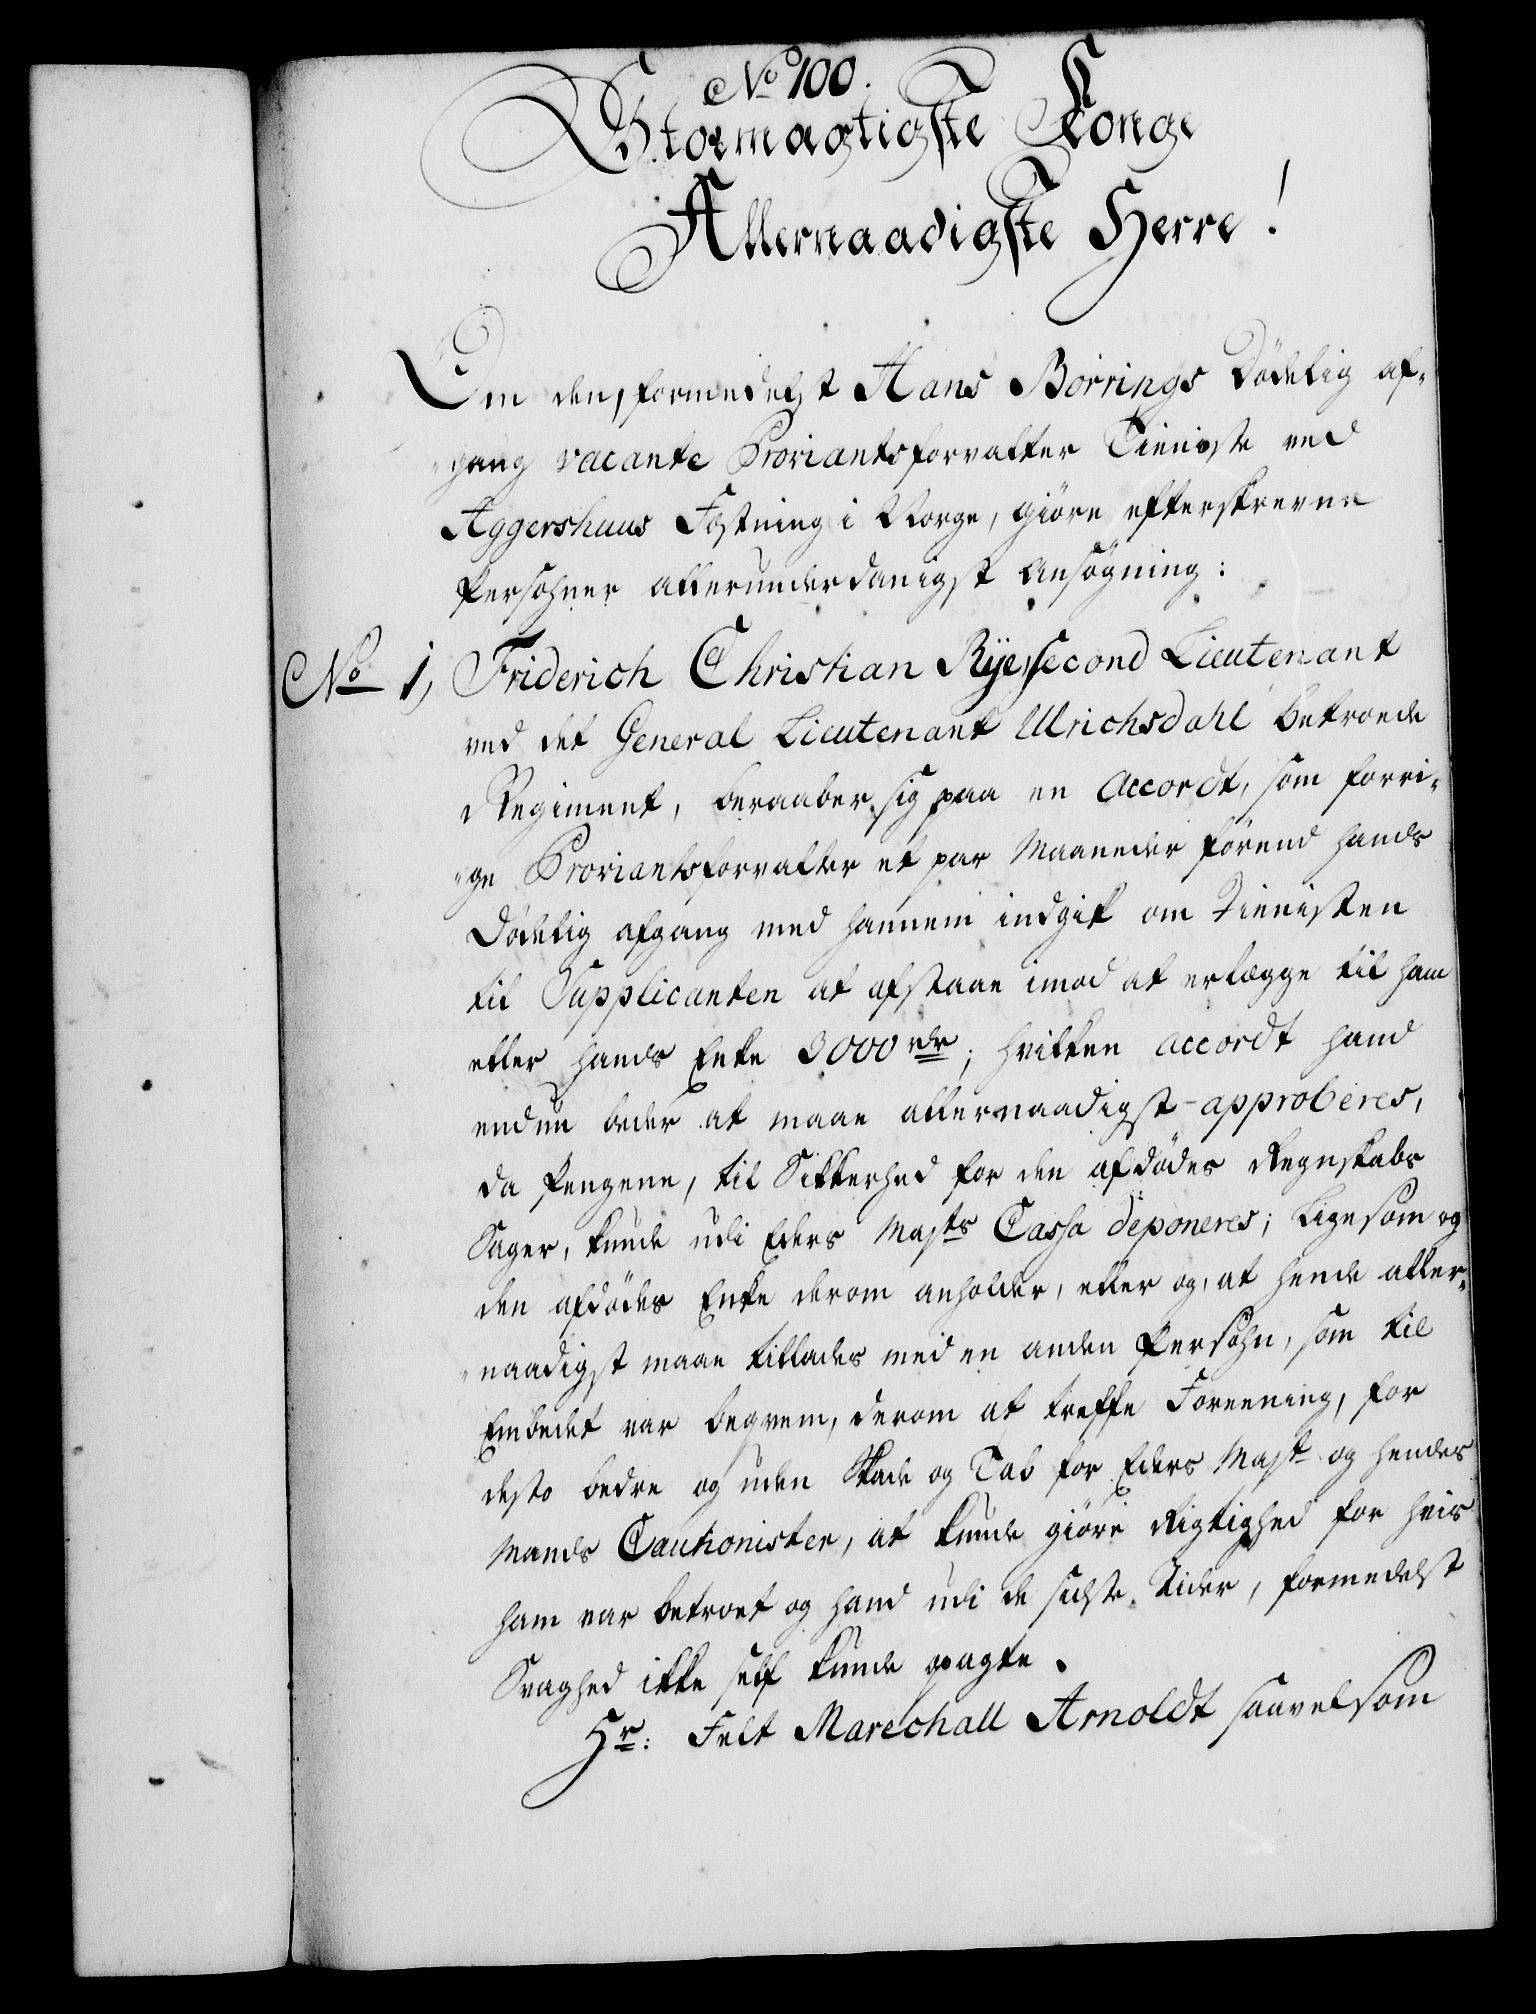 No 100.
Stormægtigste Konge
Allernaadigste Herre!
Om den, formedelst Hans Börrings Dödelig af-
gang vacante Proviantsforvalter Tieniste ved
Aggershuus Fæstning i Norge, giöre efterskrevne
Persohner allerunderdanigst Ansögning:
No 1, Friderich Christian Rÿe, Second Lieutenant
ved det General Lieutenant Ulrichsdahl betroede
Regiment, beraaber sig paa en Accordt, som forri-
ge Proviantsforvalter et par Maaneder förend hands
Dödelig afgang med hannem indgik om Tienisten
til Supplicanten at afstaae imod at erlægge til ham
eller hands Enke 3000 rdr; hvilken accordt hand
endnu beder at maae allernaadigst approberes,
da Pengene, til Sikkerhed for den afdödes Regnskabs
Sager, kunde udi Eders Mayts Cassa deponeres; ligesom og
den afdödes Enke derom anholder, eller og, at hende aller-
naadigst maae tillades med en anden Persohn, som til
Embedet var beqvem, derom at treffe Foreening, for
desto bedre og uden Skade og Tab for Eders Mayt og hendes
Mands Cautionister, at kunde giöre Rigtighed for hvis
ham var betroet og hand udi de sidste Tider, formedelst
Svaghed ikke self kunde paagte.
Hr: Felt Marechall Arnoldt saavelsom